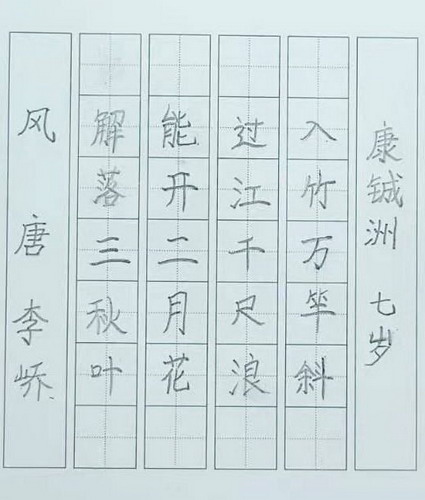 风 唐 李峤
解落三秋叶
能开二月花
过江千尺浪
入竹万竿斜
康铖洲 七岁